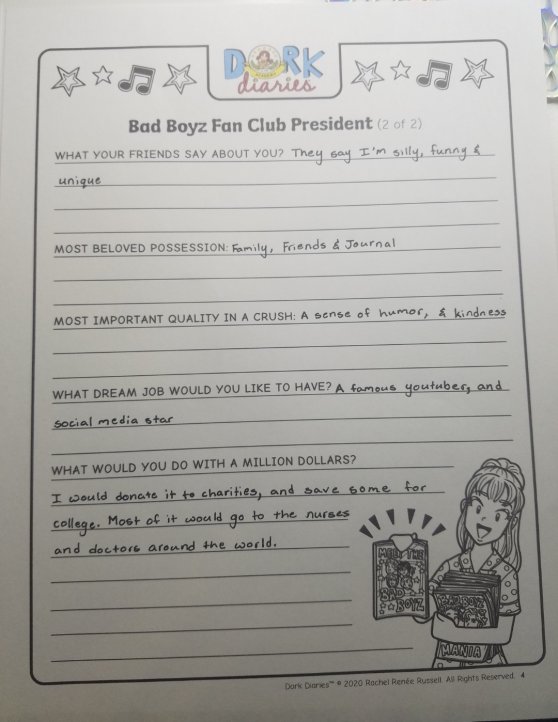 DORK
diaries
Bad Boyz Fan Club President (2 of 2)
WHAT YOUR FRIENDS SAY ABOUT YOU? They say I'm silly, funny &
unique
MOST BELOVED POSSESSION: Family, Friends & Journal
MOST IMPORTANT QUALITY IN A CRUSH: A sense of humor, & kindness
WHAT DREAM JOB WOULD YOU LIKE TO HAVE? A famous youtuber, and
social media star
WHAT WOULD YOU DO WITH A MILLION DOLLARS?
I would donate it to charities, and save some for
college. Most of it would go to the nurses
and doctors around the world.
MEET THE
BAD
BOYZ
BAD BOYZ
MANIA
Dork Diaries™ © 2020 Rachel Renée Russell. All Rights Reserved. 4